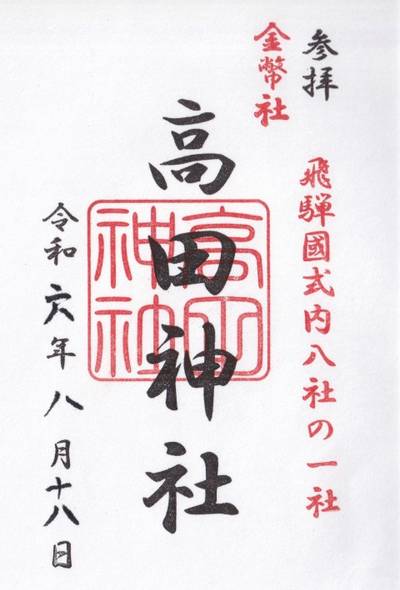 参拝
金幣社
飛騨國式内八社の一社
高田神社
高田神社
令和六年八月十八日